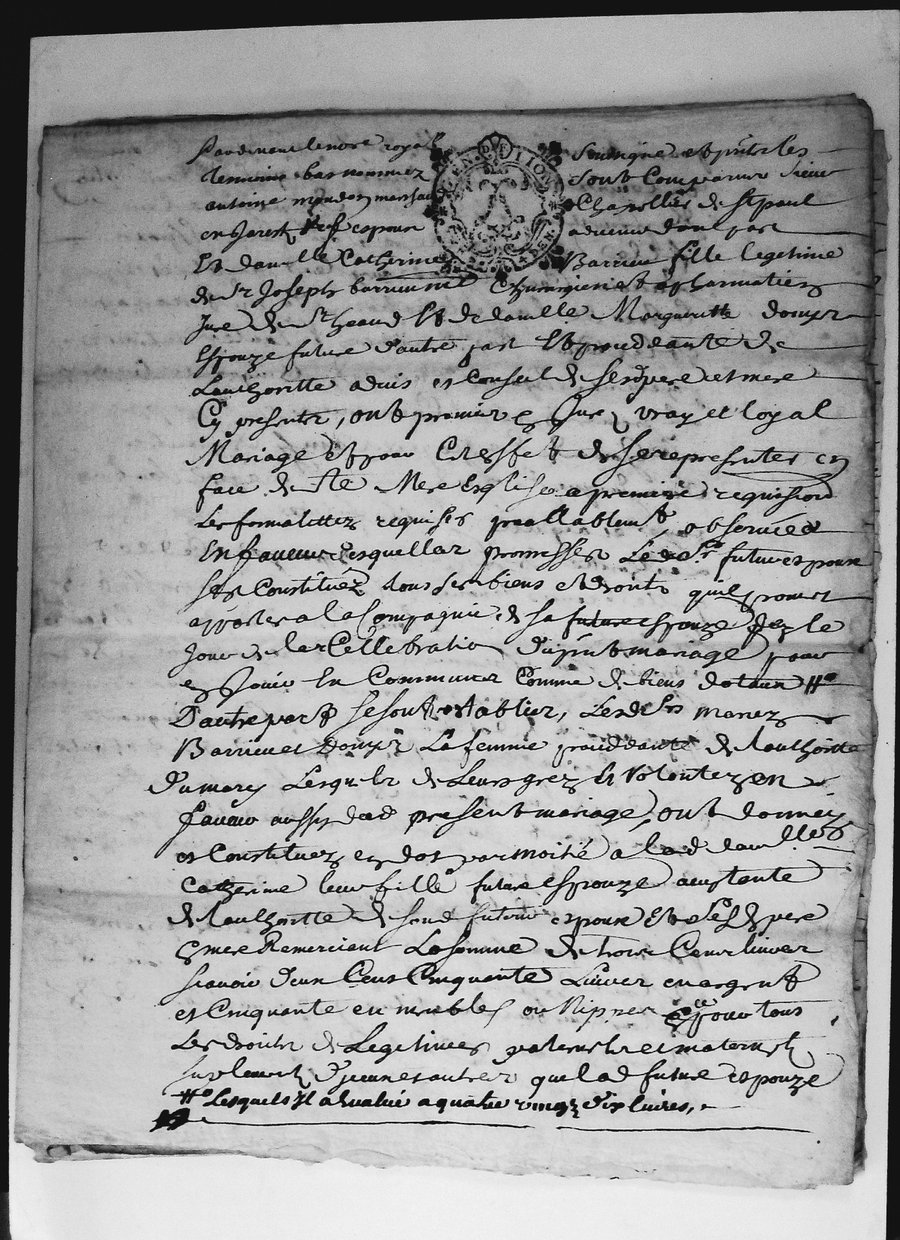 Pardevant le no.re royal soussigne et présts les
temoins bas nommez sont comparus sieur
antoine marchant Chapellier de St paul
en Jarest espoux advenir d'une part
Et dam.lle Catherine Barrieu fille legitime
de sr Joseph barrieu me Chirurgien et apharmatien
Jure de St heand Et de dam.lle Margueritte
Espouze future d'autre part Et proceddante de
Lauthoritte advis et conseil de sesd pere et mere
Cy presents, ont promis Jure vray et loyal
Mariage Et pour cet effet de se representer en
face de Ste Mere Esglise a premiere requisition
Les formalittez requises preallablemt observées
En faveur desquelles promesses Led Sr futur espoux
sest Constitué tous ses biens et droits quil promet
apporter a la Compagnie de sa future espouze le
Jour de la Cellebration du prént mariage pour
en Jouir En Commun Comme de biens dotaux #
D'autre part se sont establis, Lesd mariez
Barrieu et La femme proceddante de lauthoritte
du mary Lesquels de Leurs grez Et Volontez en
faveur aussy dud present mariage, ont donnez
et Constituez en dot par moitié a lad dam.lle
Catherine leur fille future Espouze acceptante
de lauthoritte de sond futur espoux Et sesd pere
et mere Remerciant La somme de Livres
scavoir Cent Cinquante Livres en argent
et Cinquante en meubles ou Nippes pour tous
Les droits de Legitimes paternels et maternels
suplement d'jceux et autres que lad future espouze
# Lesquels Il a Evalué a quatre vingt dix livres,